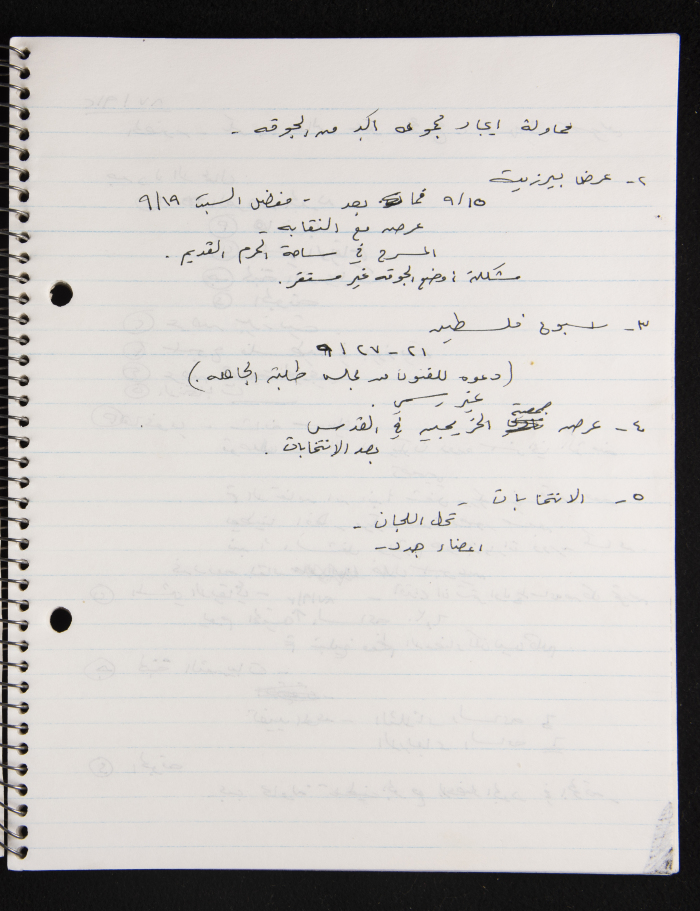 محاولة ايجاد مجموعه اكبر من الجوقه -
٢- عرض بيرزيت
٩/١٥ فما بعد - مفضل السبت ٩/١٩
عرض مع النقابه -
المسرح في ساحة الحرم القديم .
مشكلة : وضع الجوقه غير مستقر .
٣- اسبوع فلسطين
٢١ - ٩/٢٧
( دعوه للفنون من مجلس طلبة الجامعه . )
غير رسمي .
٤- عرض جمعية الخريجين في القدس
بعد الانتخابات .
٥- الانتخابات -
اللجان -
اعضاء جدد -